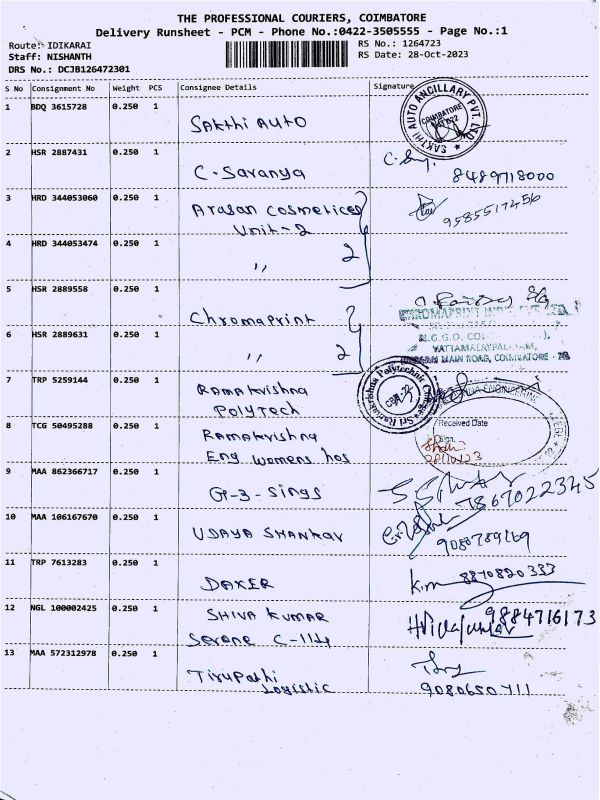 THE PROFESSIONAL COURIERS, COIMBATORE
Delivery Runsheet - PCM - Phone No.:0422-3505555 - Page No.:1
Route: IDIKARAI
RS No.: 1264723
Staff: NISHANTH
RS Date: 28-Oct-2023
DRS No.: DCJB126472301
S No Consignment No Weight PCS Consignee Details Signature
1 BDQ 3615728 0.250 1
SAKthi AUTO
SAKTHI AUTO ANCILLARY PVT. LTD.
COIMBATORE
2 HSR 2887431 0.250 1
C. Saranya
8489718000
3 HRD 344053060 0.250 1 Arasan Cosmetices
Unit-2
9585517456
4 HRD 344053474 0.250 1
" 2
5 HSR 2889558 0.250 1
Chromaprint
6 HSR 2889631 0.250 1
" 2
VATTAMALAIPALAYAM,
MAIN ROAD, COIMBATORE
7 TRP 5259144 0.250 1
RAMAKrishna
POLYTECH
Sri Ramakrishna Polytechnic College
8 TCG 50495288 0.250 1
RAMAKrishna
Eng womens hos
ENGINEERING
Received Date
Sign.
28/10/23
9 MAA 862366717 0.250 1
G-3-Sings
7867022345
10 MAA 106167670 0.250 1
UDAYA SHANKAR
9080789169
11 TRP 7613283 0.250 1
DAXER
8870820333
12 NGL 100002425 0.250 1
SHIVA KUMAR
Serene C-114
9884716173
13 MAA 572312978 0.250 1
Tirupathi
Logistic
9080650711